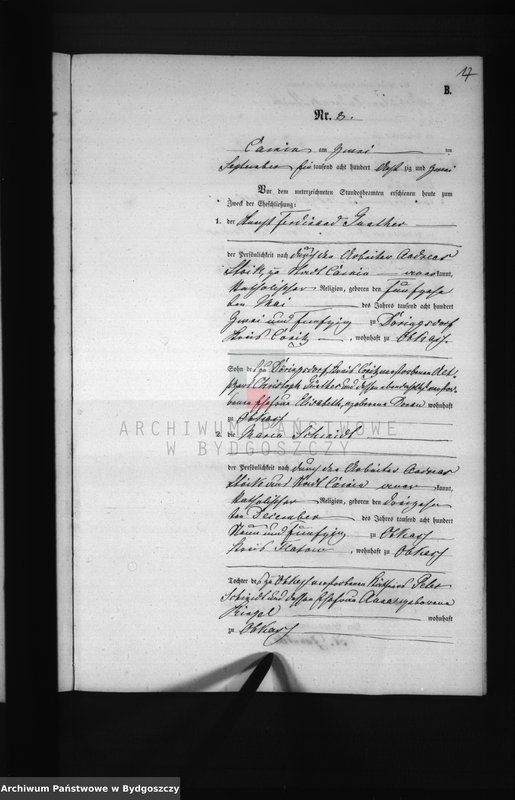 17
B.
Nr. 3.
Camin am zwei ten
September ein tausend acht hundert acht zig und zwei
Vor dem unterzeichneten Standesbeamten erschienen heute zum
Zweck der Eheschließung:
1. der Ferdinand Guenther
der Persönlichkeit nach durch den Arbeiter Andreas
zu Stadt Camin aner kannt,
katholischer Religion, geboren den fünfzehn
ten Mai des Jahres tausend acht hundert
zwei und fünfzig zu Döringsdorf
Kreis Conitz, wohnhaft zu Obkas.
Sohn des zu Döringsdorf, Kreis Conitz verstorbenen
Christoph Günther und dessen ebendaselbst verstor-
benen Ehefrau Elisabeth, geborene wohnhaft
zu Obkas
2. die Maria Schmidt
ARCHIWUM PAŃSTWOWE
W BYDGOSZCZY
der Persönlichkeit nach durch den Arbeiter Andreas
aus Stadt Camin aner kannt,
katholischer Religion, geboren den dreizehn
ten December des Jahres tausend acht hundert
neun und fünfzig zu Obkas
Kreis Flatow, wohnhaft zu Obkas
Tochter des zu Obkas verstorbenen Peter
Schmidt und dessen Ehefrau Anna geborene
wohnhaft
zu Obkas
Archiwum Państwowe w Bydgoszczy